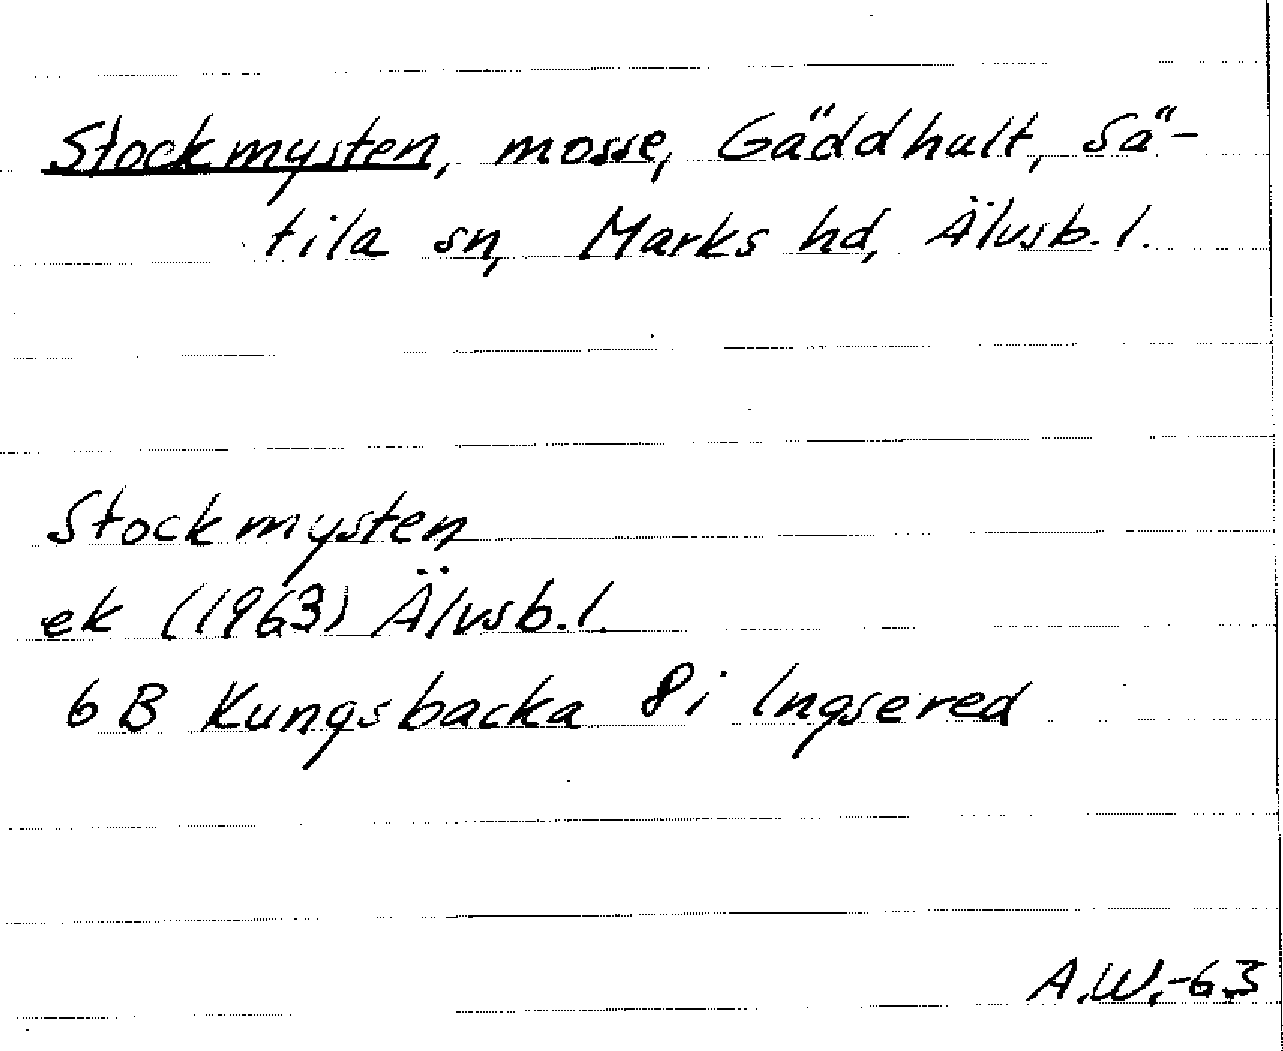 Stockmysten, mosse, Gäddhult, Sä-
tila sn, Marks hd, Älvsb. l.
Stockmysten
ek (1963) Älvsb. l.
6 B Kungsbacka 8i Ingsered
A.W.-63